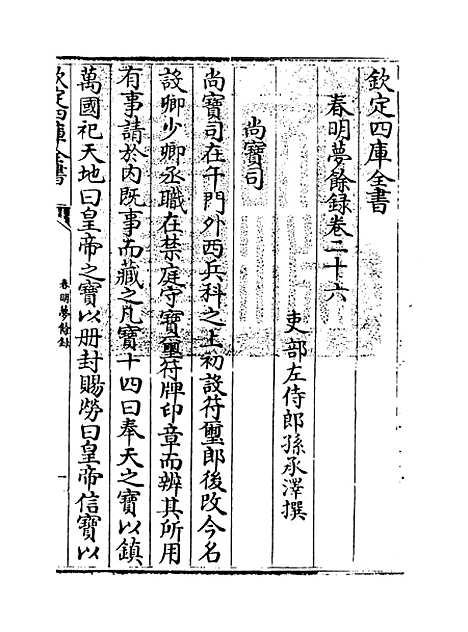 欽定四庫全書
春明夢餘録卷二十六
吏部左侍郎孫承澤撰
尚寶司
尚寶司在午門外西兵科之上初設符璽郎後改今名
設卿少卿丞職在禁庭守寶璽符牌印章而辨其所用
有事請於內既事而藏之凡寶十四曰奉天之寶以鎮
萬國祀天地曰皇帝之寶以册封賜勞曰皇帝信寶以
欽定四庫全書
春明夢餘録
一